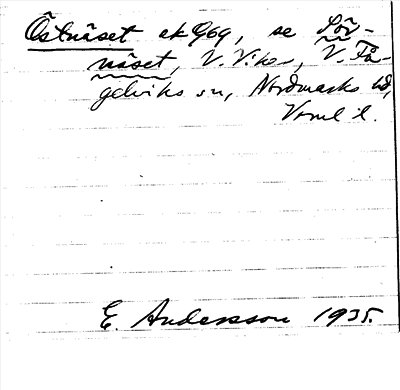 Östnäset ek 969, se Löv-
näset, V. Viker, V. Få-
gelviks sn, Nordmarks hd,
Vrml. l.
E. Andersson 1935.